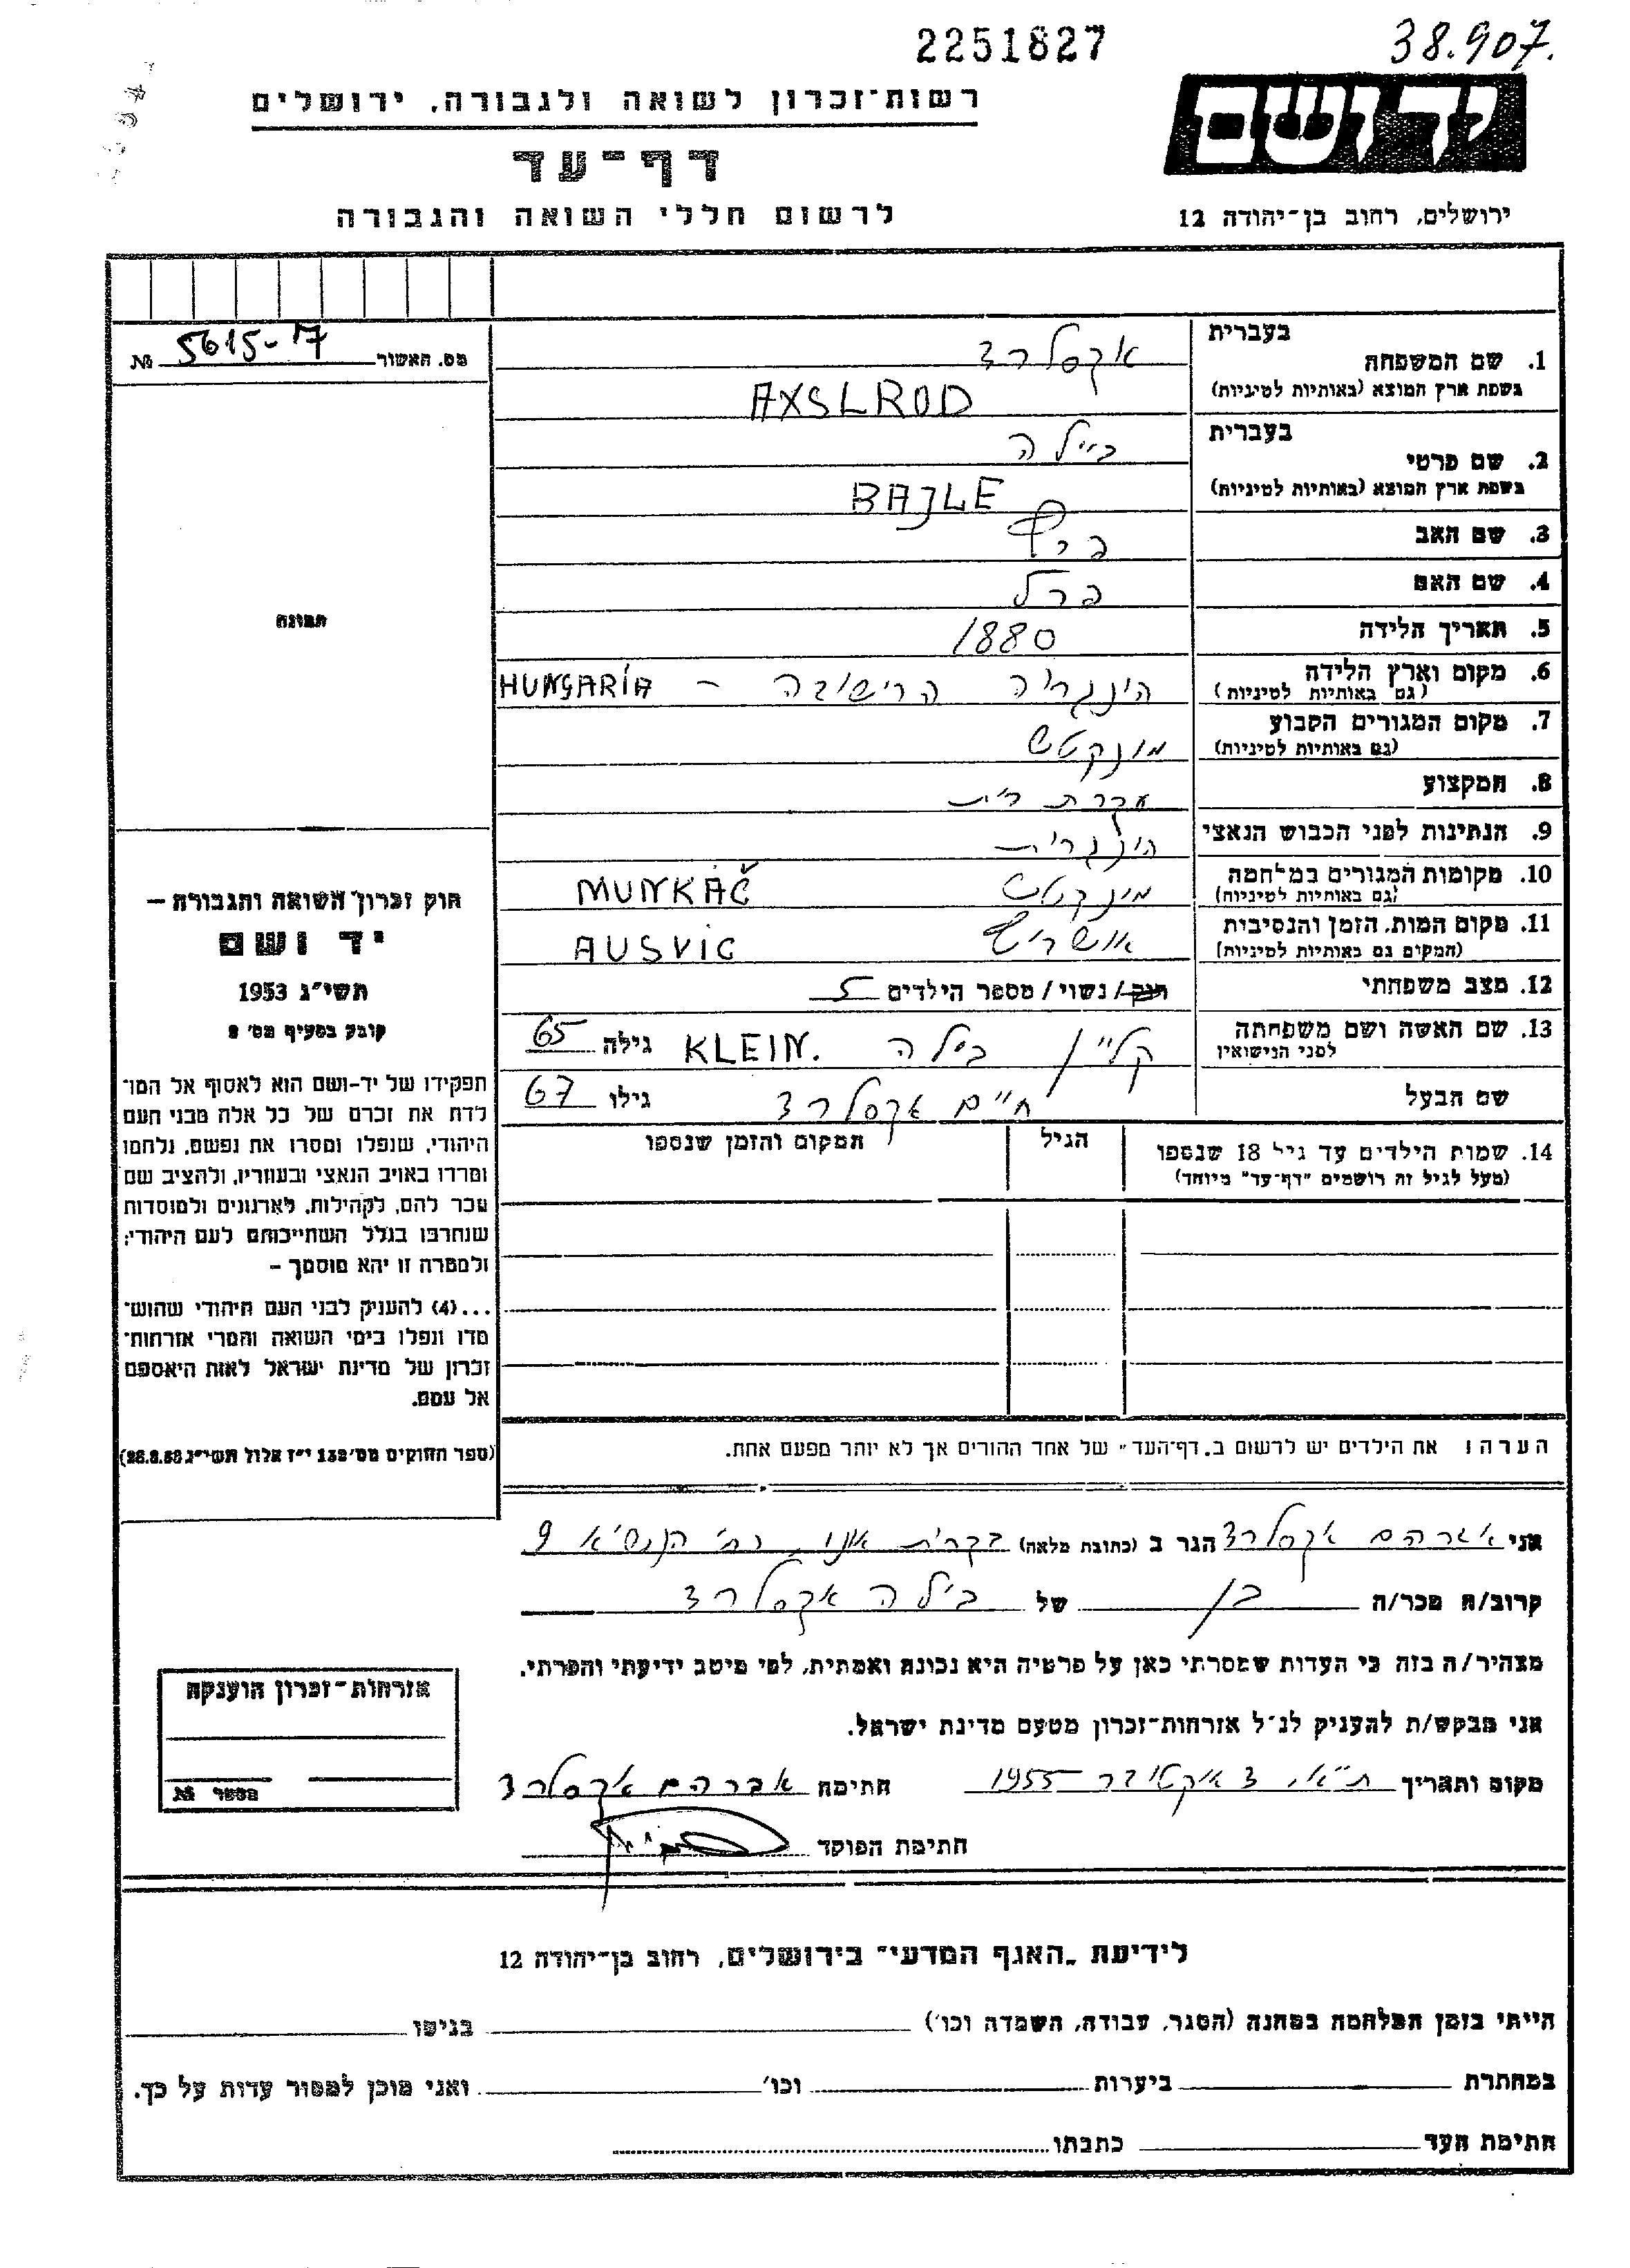 2251827
38.907.
יד ושם
ירושלים, רחוב בן־יהודה 12
רשות־זכרון לשואה ולגבורה, ירושלים
דף־עד
לרשום חללי השואה והגבורה
מס. האשור 5615-17 №
תמונה
1. שם המשפחה בעברית אקסלרד
בשפת ארץ המוצא (באותיות לטיניות) AXSLROD
2. שם פרטי בעברית ביילה
בשפת ארץ המוצא (באותיות לטיניות) BAJLE
3. שם האב
4. שם האם פרל
5. תאריך הלידה 1880
6. מקום וארץ הלידה (גם באותיות לטיניות) הונגריה - HUNGARIA
7. מקום המגורים הקבוע (גם באותיות לטיניות) מונקטש
8. המקצוע עקרת בית
9. הנתינות לפני הכבוש הנאצי הונגרית
10. מקומות המגורים במלחמה (גם באותיות לטיניות) מונקטש MUNKÁČ
11. מקום המות, הזמן והנסיבות (המקום גם באותיות לטיניות) אושויץ AUSVIC
12. מצב משפחתי רווק/נשוי/ מספר הילדים 5
13. שם האשה ושם משפחתה לפני הנישואין קליין בילה KLEIN. גילה 65
שם הבעל חיים אקסלרד גילו 67
14. שמות הילדים עד גיל 18 שנספו
(מעל לגיל זה רושמים "דף־עד" מיוחד)
הגיל
המקום והזמן שנספו
הערה: את הילדים יש לרשום ב„דף־העד" של אחד ההורים אך לא יותר מפעם אחת.
חוק זכרון השואה והגבורה –
יד ושם
תשי"ג 1953
קובע בסעיף מס׳ 2
תפקידו של יד-ושם הוא לאסוף אל המו־
לדת את זכרם של כל אלה מבני העם
היהודי, שנפלו ומסרו את נפשם, נלחמו
ומרדו באויב הנאצי ובעוזריו, ולהציב שם
וזכר להם, לקהילות, לארגונים ולמוסדות
שנחרבו בגלל השתייכותם לעם היהודי;
ולמטרה זו יהא מוסמך –
...(4) להעניק לבני העם היהודי שהוש־
מדו ונפלו בימי השואה והמרי אזרחות־
זכרון של מדינת ישראל לאות היאספם
אל עמם.
(ספר החוקים מס׳ 132 י"ז אלול תשי"ג 28.8.53)
אני אברהם אקסלרד הגר ב (כתובת מלאה) בקרית אונו, רח׳ הנשיא 9
קרוב/ה מכר/ה בן של בילה אקסלרד
מצהיר/ה בזה כי העדות שמסרתי כאן על פרטיה היא נכונה ואמתית, לפי מיטב ידיעתי והכרתי.
אני מבקש/ת להעניק לנ"ל אזרחות־זכרון מטעם מדינת ישראל.
מקום ותאריך ת"א, 3 אוקטובר 1955 חתימה אברהם אקסלרד
חתימת הפוקד
אזרחות־זכרון הוענקה
מספר №
לידיעת „האגף המדעי" בירושלים, רחוב בן־יהודה 12
הייתי בזמן המלחמה במחנה (הסגר, עבודה, השמדה וכו׳) בגיטו
במחתרת ביערות וכו׳ ואני מוכן למסור עדות על כך.
חתימת העד כתבתו